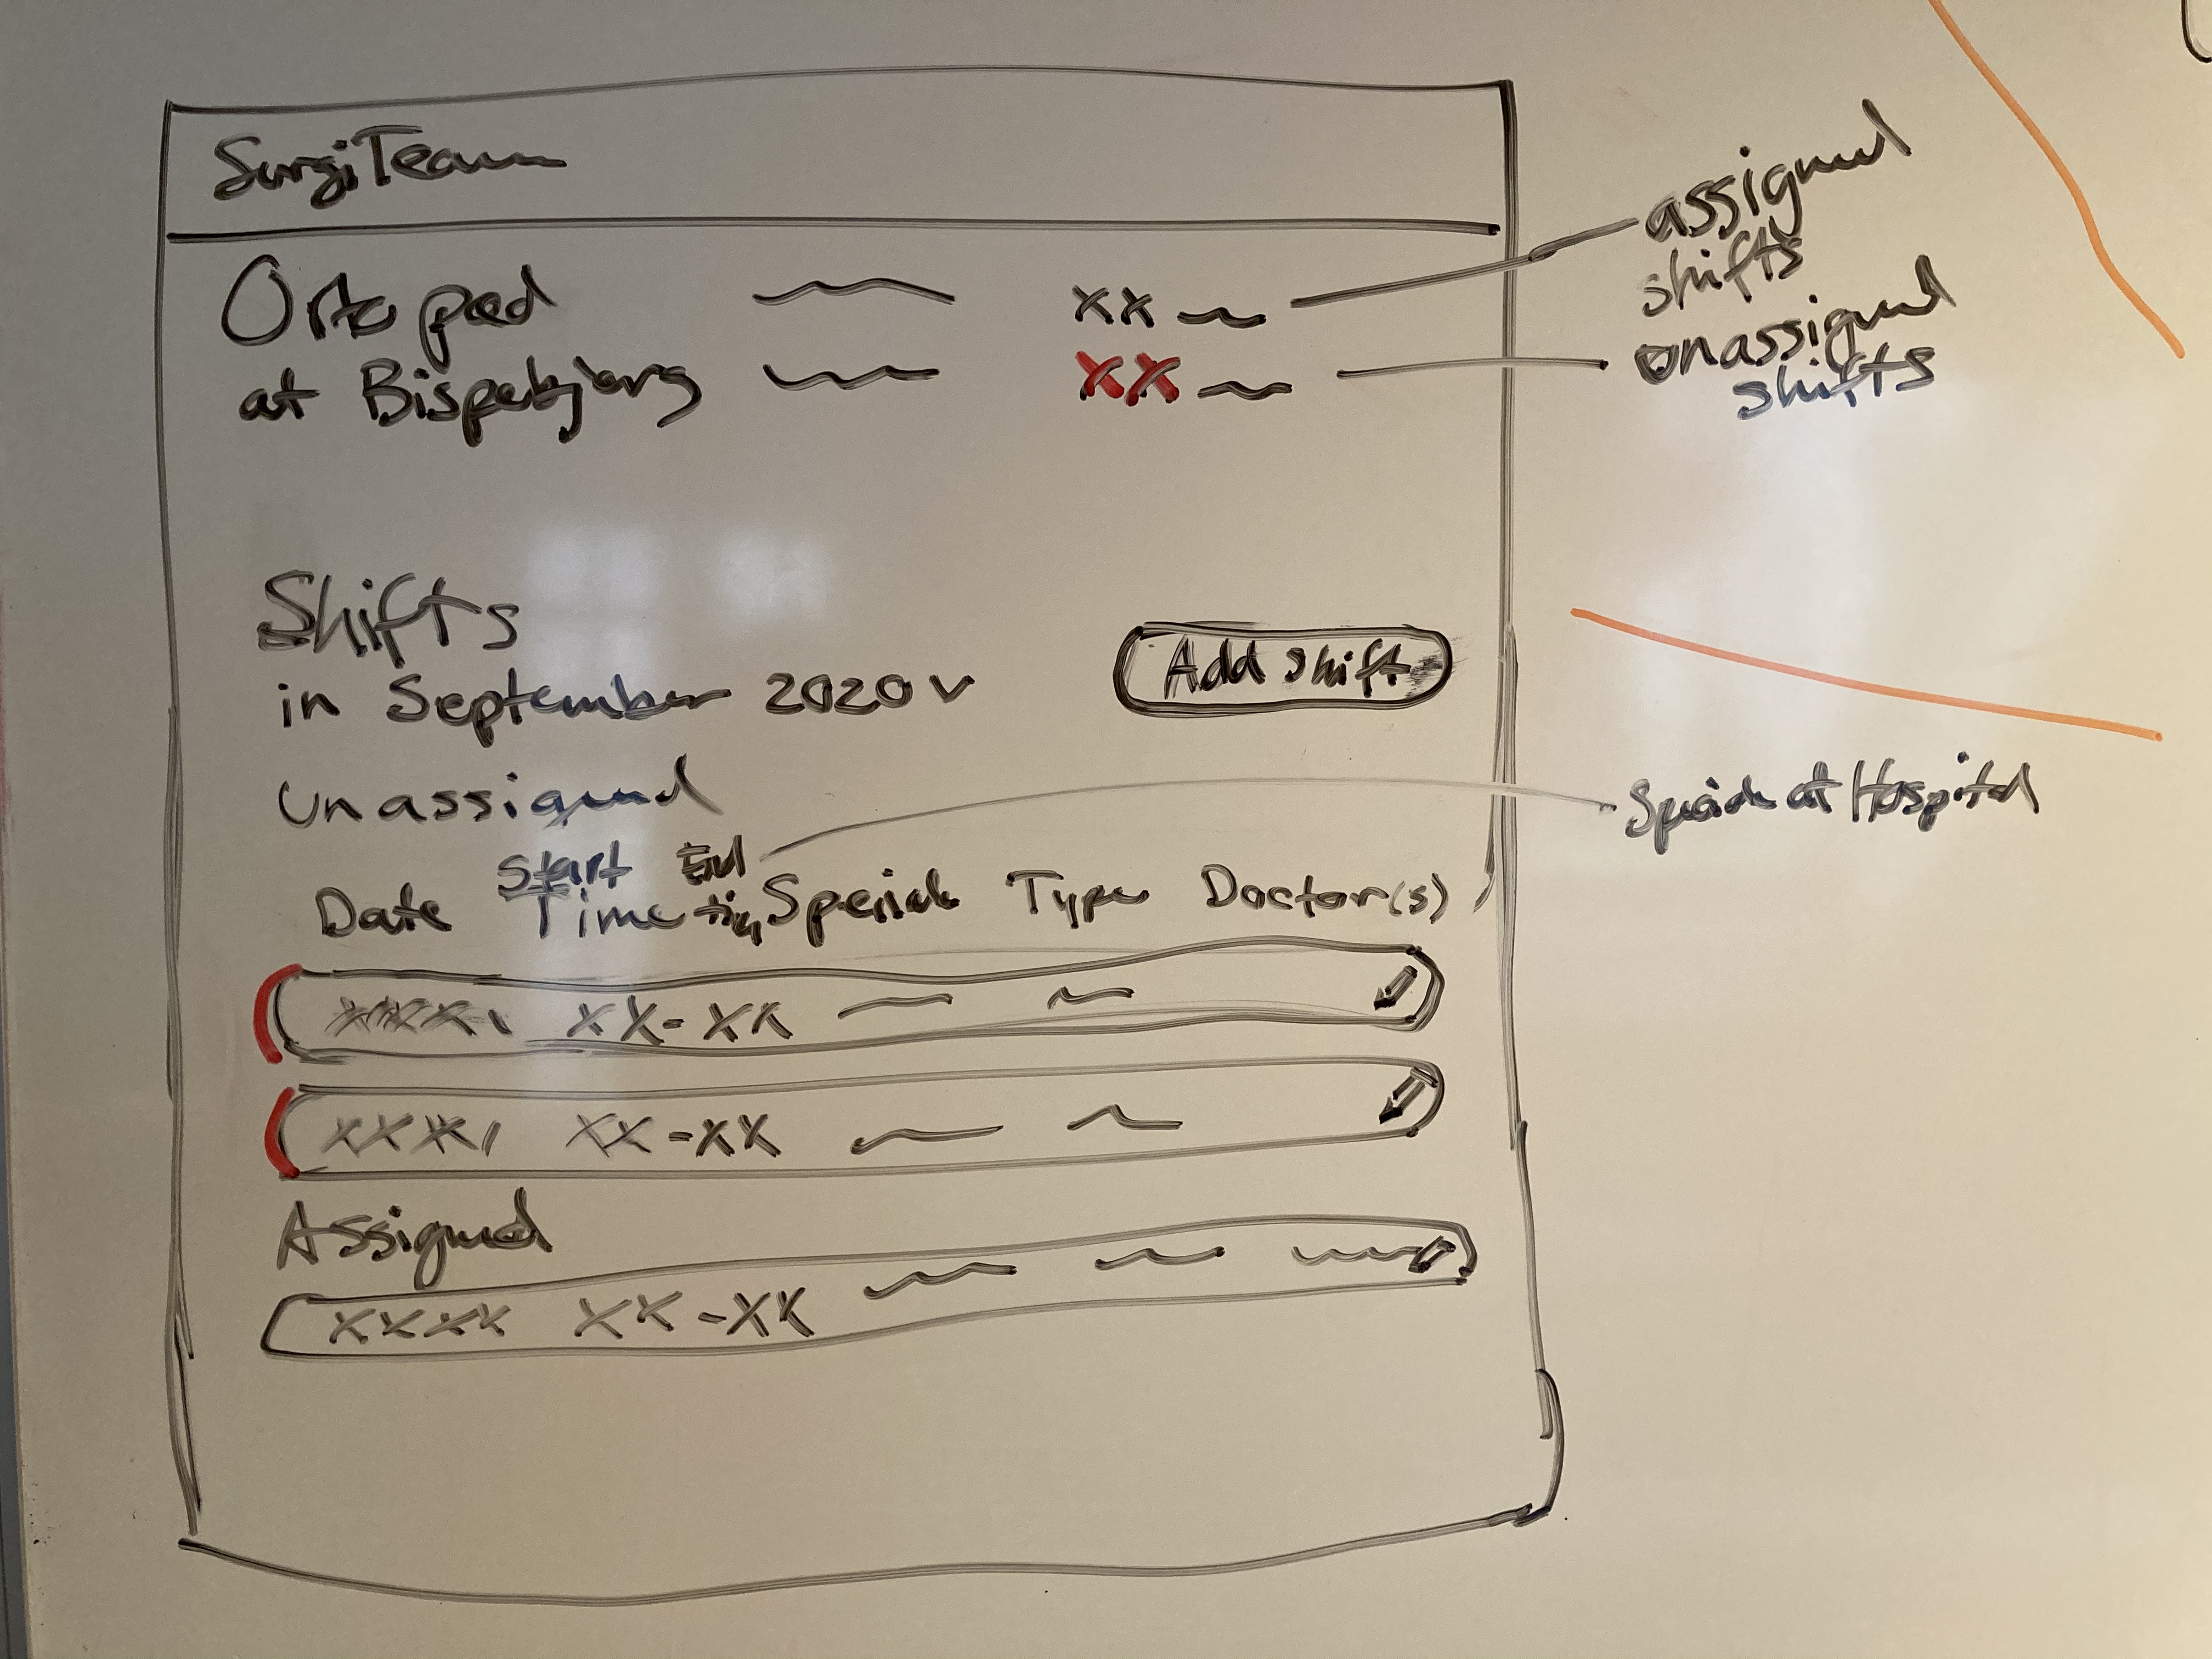 SurgiTeam
Ortopæd
at Bispebjerg
xx
xx
assigned
shifts
unassigned
shifts
Shifts
in September 2020 v
Add shift
Unassigned
Start End
Date Time Type Doctor(s)
at Hospital
xxxx xx-xx
xxxx xx-xx
Assigned
xxxx xx-xx